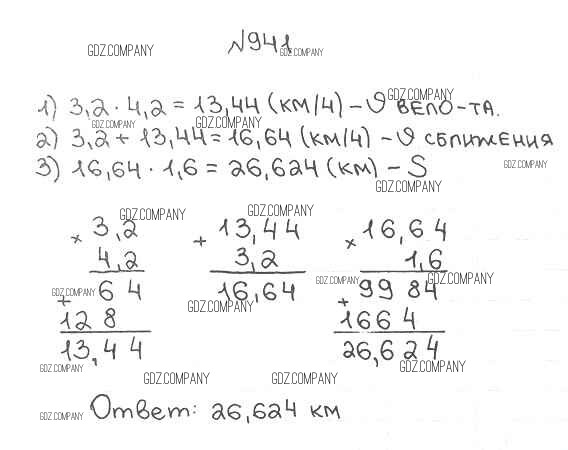 №941
GDZ.COMPANY GDZ.COMPANY
GDZ.COMPANY
1) 3,2 · 4,2 = 13,44 (км/ч) – υ вело-та.
GDZ.COMPANY GDZ.COMPANY
2) 3,2 + 13,44 = 16,64 (км/ч) – υ сближения
3) 16,64 · 1,6 = 26,624 (км) – S
GDZ.COMPANY
GDZ.COMPANY
GDZ.COMPANY GDZ.COMPANY
× 3,2 + 13,44 × 16,64
4,2 3,2 1,6
GDZ.COMPANY GDZ.COMPANY
GDZ.COMPANY
+ 64 16,64 + 9984
GDZ.COMPANY
128 1664
13,44 26,624
GDZ.COMPANY GDZ.COMPANY
GDZ.COMPANY GDZ.COMPANY
GDZ.COMPANY
Ответ: 26,624 км